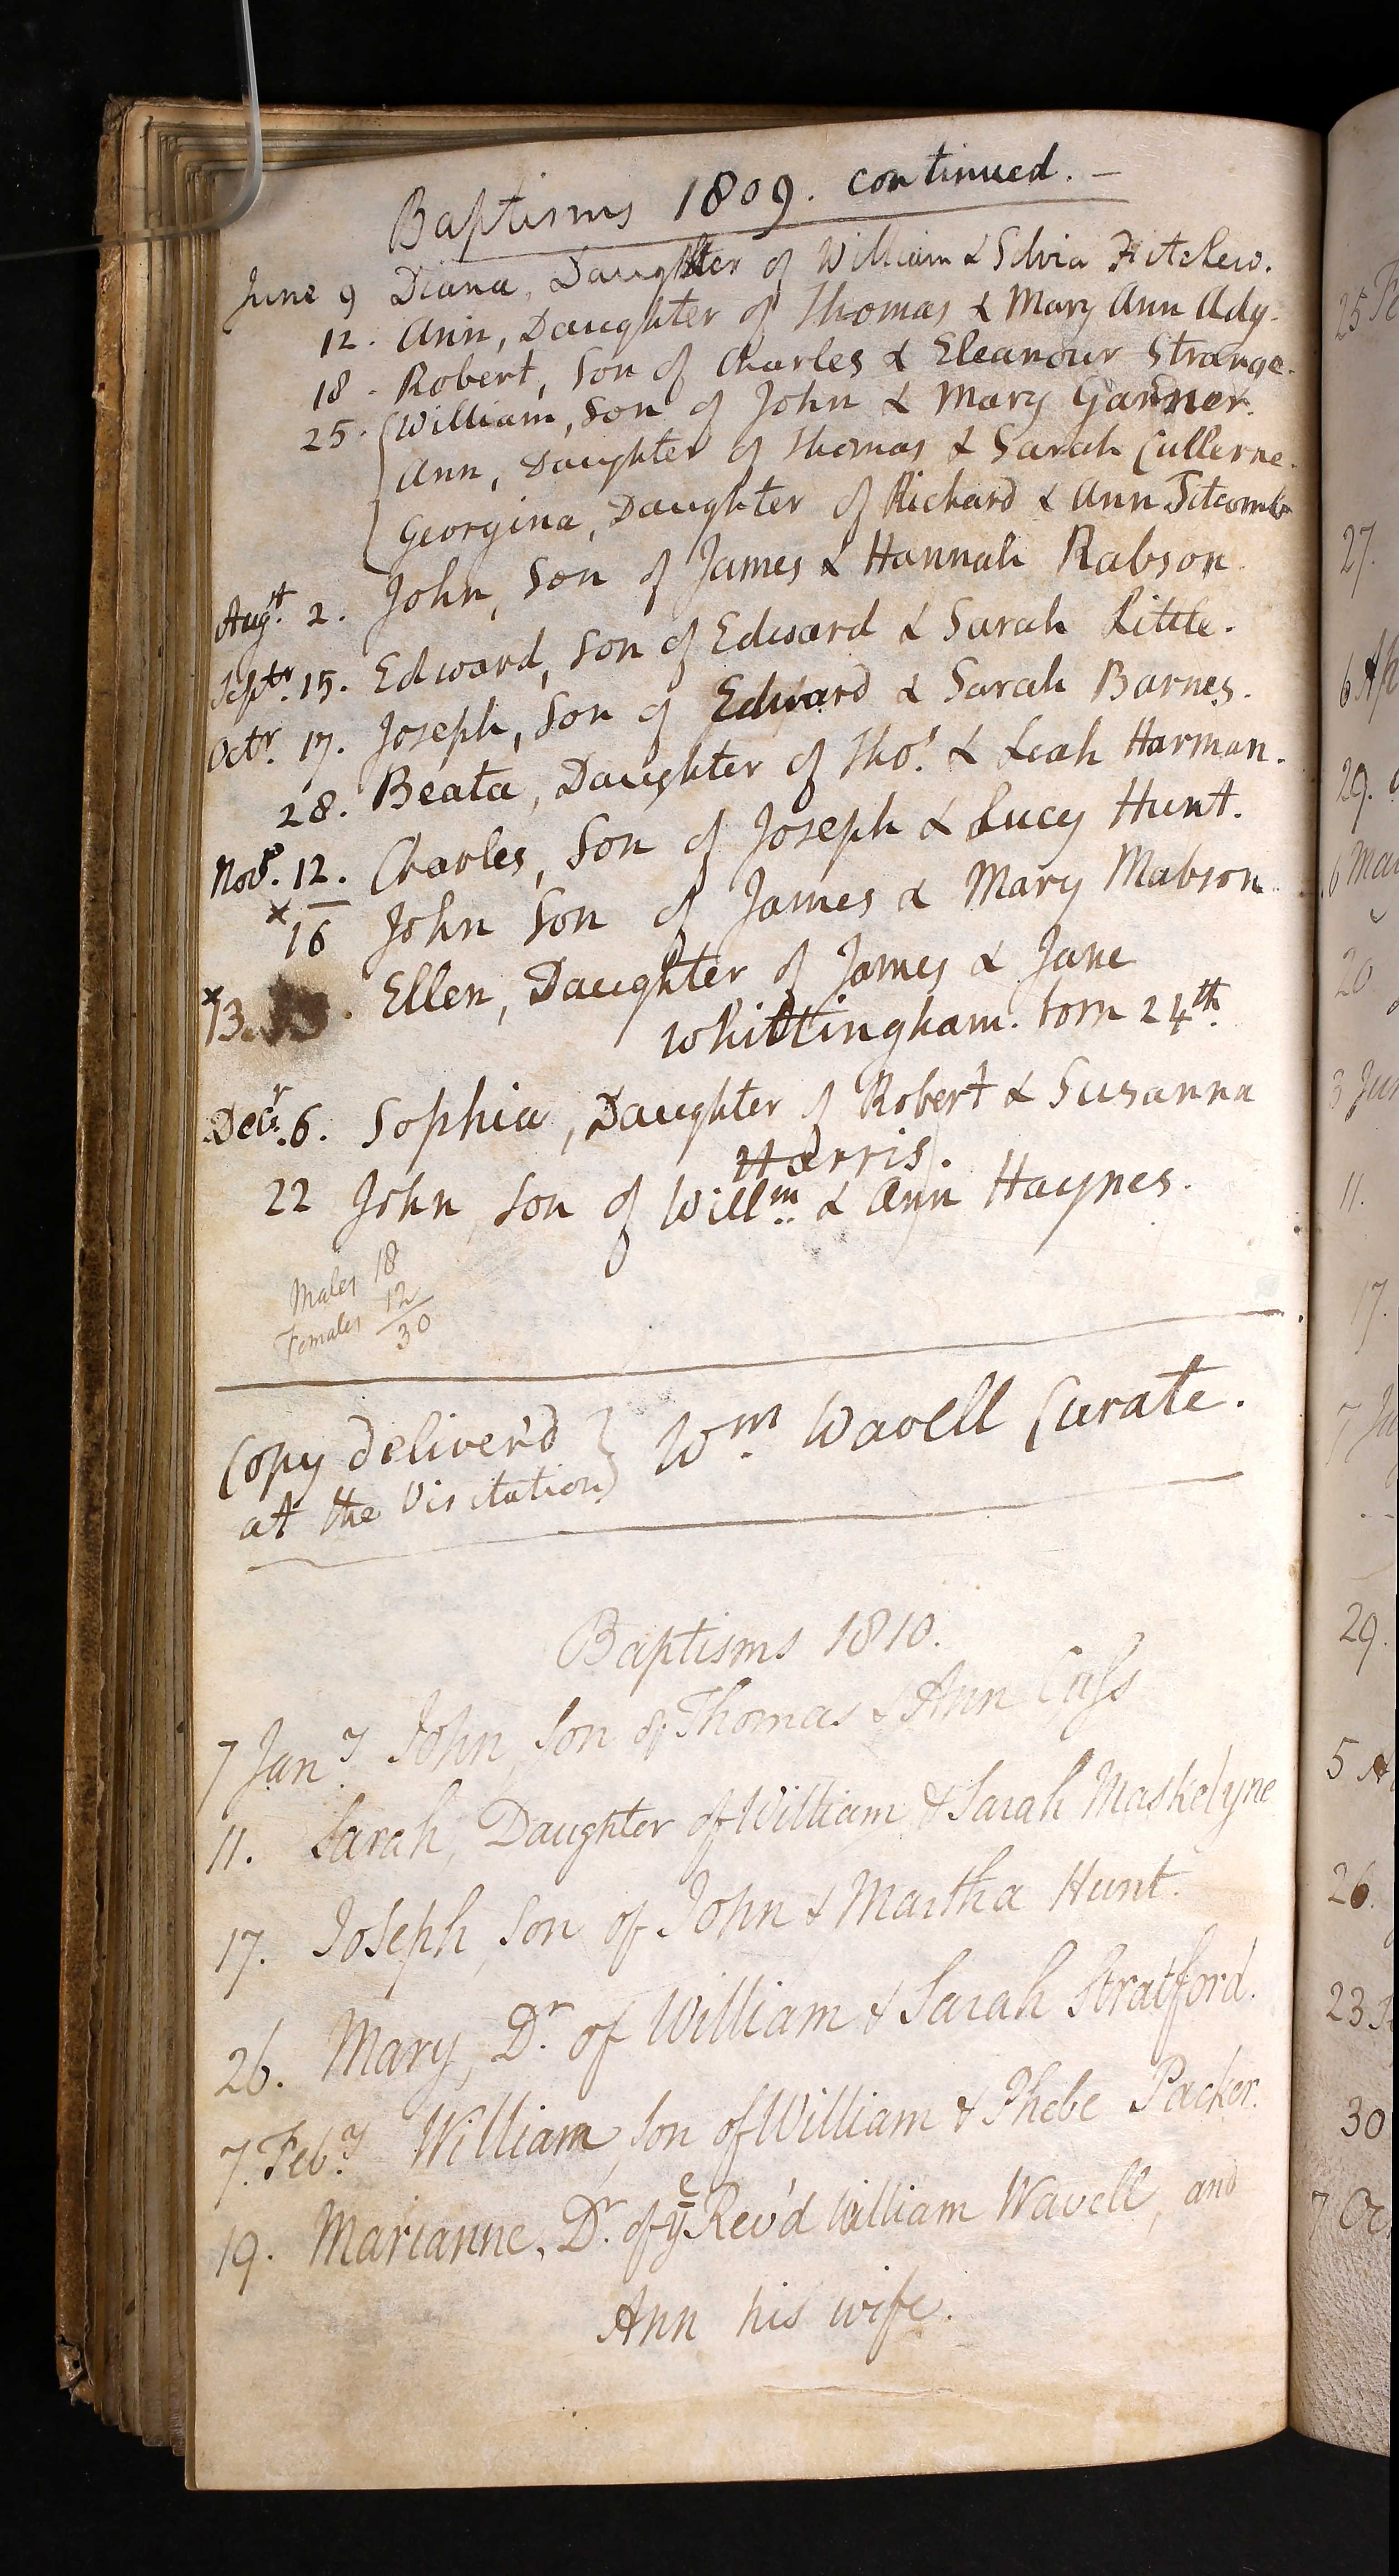 Baptisms 1809. continued. –
June 9 Diana, Daughter of William & Silvia Hitchew.
12. Ann, Daughter of Thomas & Mary Ann Ady.
18. Robert, Son of Charles & Eleanour Strange.
25. William, Son of John & Mary Garner.
Ann, Daughter of Thomas & Sarah Cullerne.
Georgina, Daughter of Richard & Ann Titcomb
Augt. 2. John, Son of James & Hannah Rabson
Septr. 15. Edward, Son of Edward & Sarah Little.
Octr. 17. Joseph, Son of Edward & Sarah Barnes.
28. Beata, Daughter of Thos. & Leah Harman.
Novr. 12. Charles, Son of Joseph & Lucy Hunt.
× 16 John Son of James & Mary Mabson
× 13. Ellen, Daughter of James & Jane
Whittingham. born 24th.
Decr. 6. Sophia, Daughter of Robert & Susanna
Harris.
22 John, Son of Willm. & Ann Haynes.
Males 18
Females 12
30
Copy deliver'd
at the Visitation } Wm. Wavell Curate.
Baptisms 1810.
7 Jany. John, Son of Thomas & Ann Cass
11. Sarah, Daughter of William & Sarah Maskelyne
17. Joseph, Son of John & Martha Hunt.
26. Mary, Dr. of William & Sarah Stratford.
7. Feby. William, Son of William & Phebe Packer.
19. Marianne, Dr. of ye Rev'd William Wavell, and
Ann his wife.
27.
29.
20
11.
17.
29.
26.
30